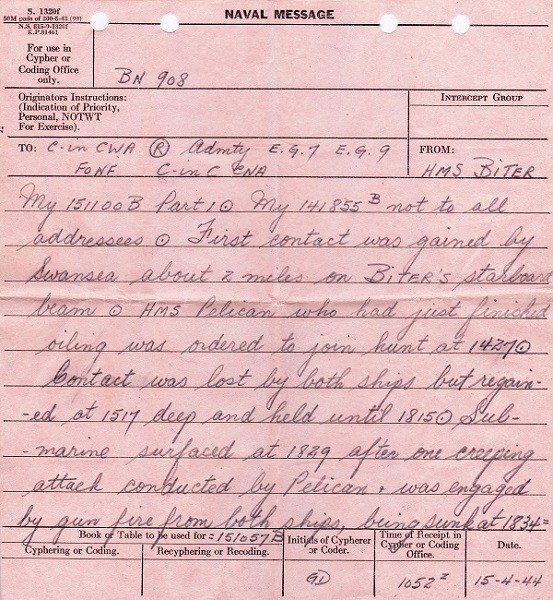 S. 1320f
50M pads of 200-6-43 (99)
N.S. 815-9-1320f
K.P. 81461
NAVAL MESSAGE
For use in
Cypher or
Coding Office
only.
BN 908
Originators Instructions:
(Indication of Priority,
Personal, NOTWT
For Exercise).
INTERCEPT GROUP
TO: C-in CWA (R) Admty E.G.7 E.G.9
FONF C-in C CNA
FROM:
HMS BITER
My 151100B Part 1⊙ My 141855B not to all
addressees ⊙ First contact was gained by
Swansea about 2 miles on BITER'S starboard
beam ⊙ HMS Pelican who had just finished
oiling was ordered to join hunt at 1427⊙
Contact was lost by both ships but regain-
-ed at 1517 deep and held until 1815⊙ Sub-
-marine surfaced at 1829 after one creeping
attack conducted by Pelican + was engaged
by gun fire from both ships, being sunk at 1834=
Book or Table to be used for =151057B
Cyphering or Coding.
Recyphering or Recoding.
Initials of Cypherer
or Coder.
GD
Time of Receipt in
Cypher or Coding
Office.
1052z
Date.
15-4-44